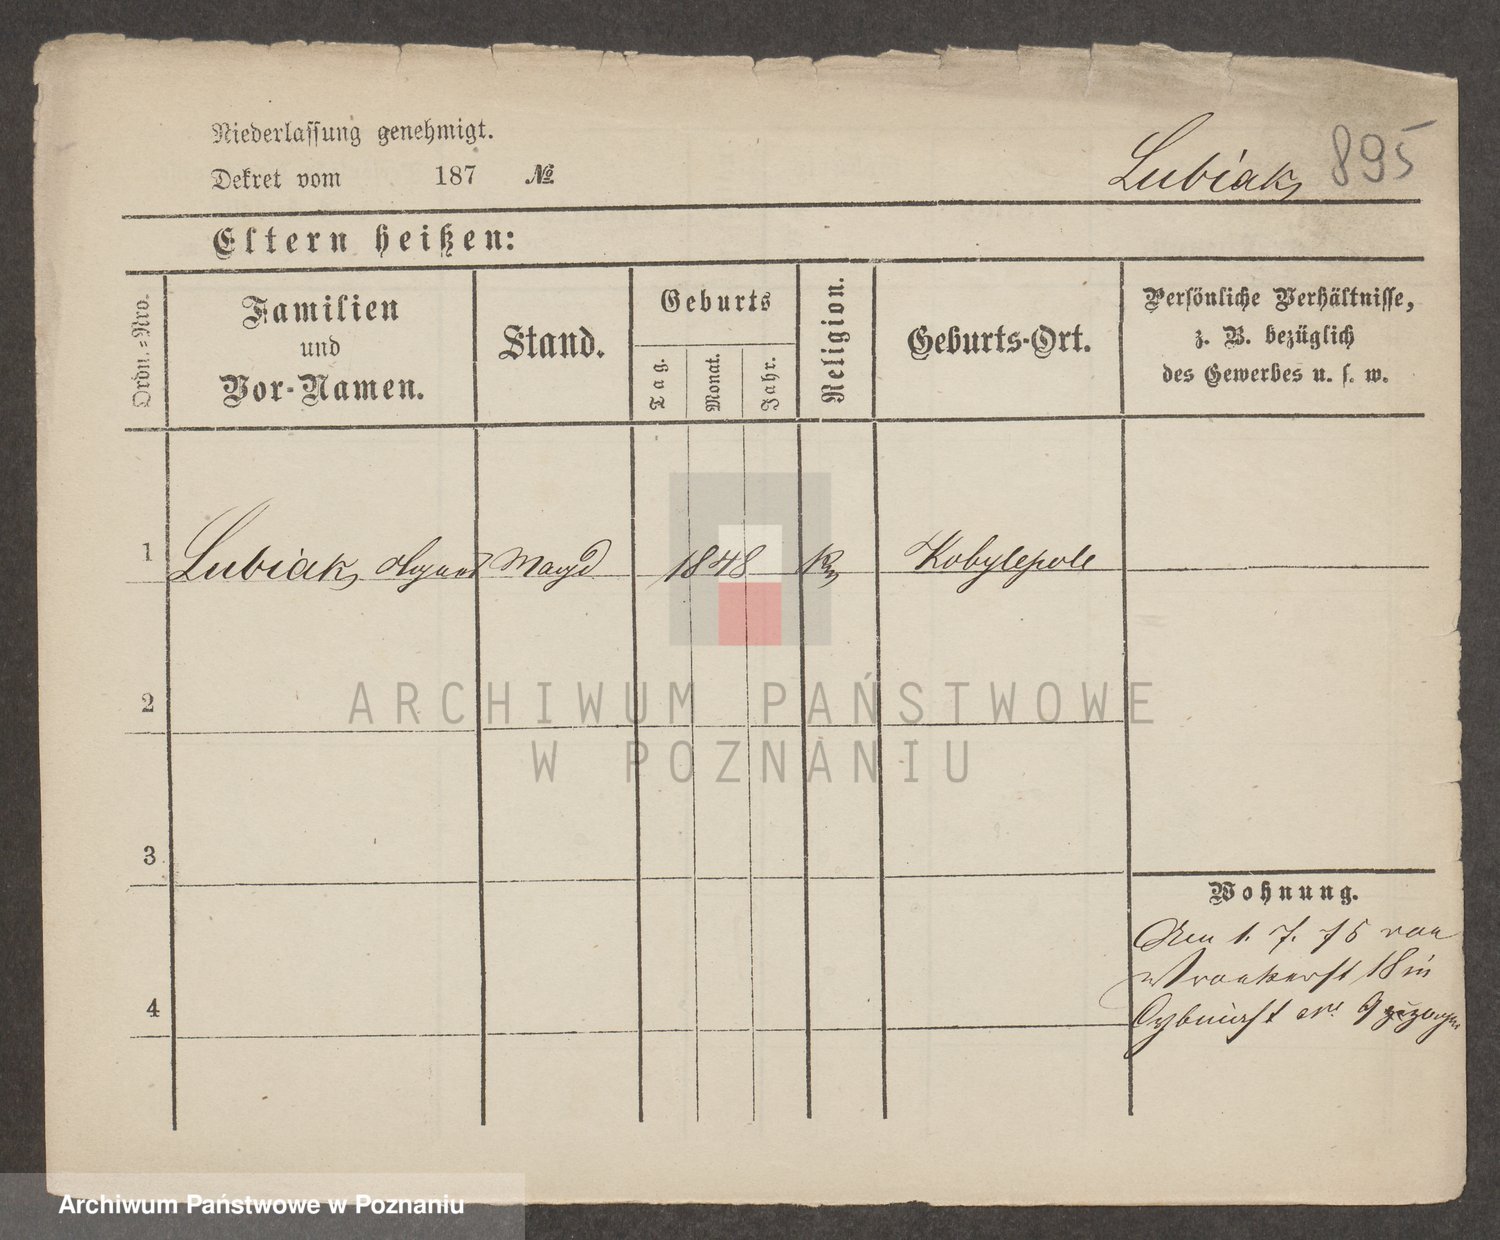 Niederlassung genehmigt.
Dekret vom 187 №
Lubiak, 895
Eltern heißen:
Ordn.=Nro.
Familien
und
Vor-Namen.
Stand.
Geburts
Tag.
Monat.
Jahr.
Religion.
Geburts-Ort.
Persönliche Verhältnisse,
z. B. bezüglich
des Gewerbes u. s. w.
1 Lubiak, Agnes Magd 1848 k Kobylepole
2
ARCHIWUM PAŃSTWOWE
W POZNANIU
3
Wohnung.
1. 7. 75 von
18 in
4
9 gezogen
Archiwum Państwowe w Poznaniu